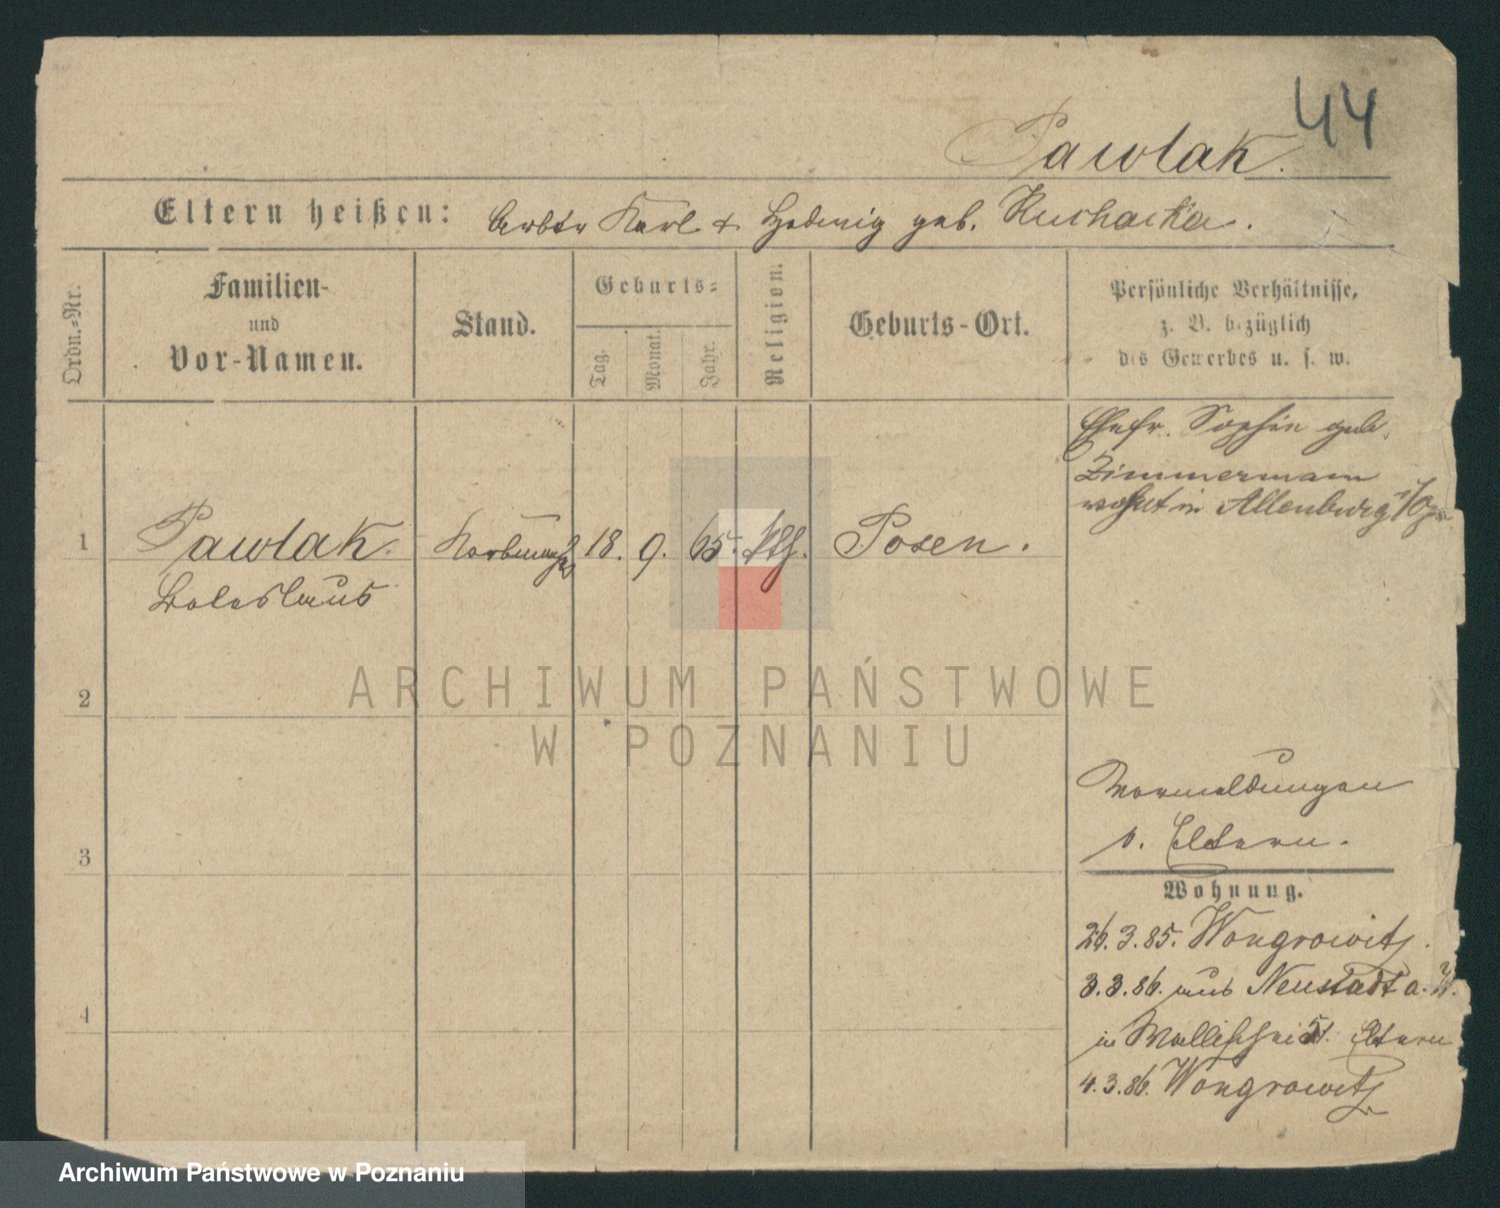 44
Pawlak.
Eltern heißen: Arbtr Karl & Hedwig geb. Kucharska.
Ordn.-Nr.
Familien- und Vor-Namen.
Stand.
Geburts-
Tag.
Monat.
Jahr.
Religion.
Geburts-Ort.
Persönliche Verhältnisse,
z. B. bezüglich
des Gewerbes u. s. w.
Ehefr. Sophie geb.
Zimmermann
wohnt in Allenburg
1 Pawlak Korbmach 18. 9. 65. kth. Posen.
Boleslaus
2
ARCHIWUM PAŃSTWOWE
W POZNANIU
Vormeldungen
b. Eltern.
3
Wohnung.
26.3.85. Wongrowitz.
3.3.86. aus Neustadt a. W.
4
in Wallischei 51. Eltern
4.3.86. Wongrowitz
Archiwum Państwowe w Poznaniu